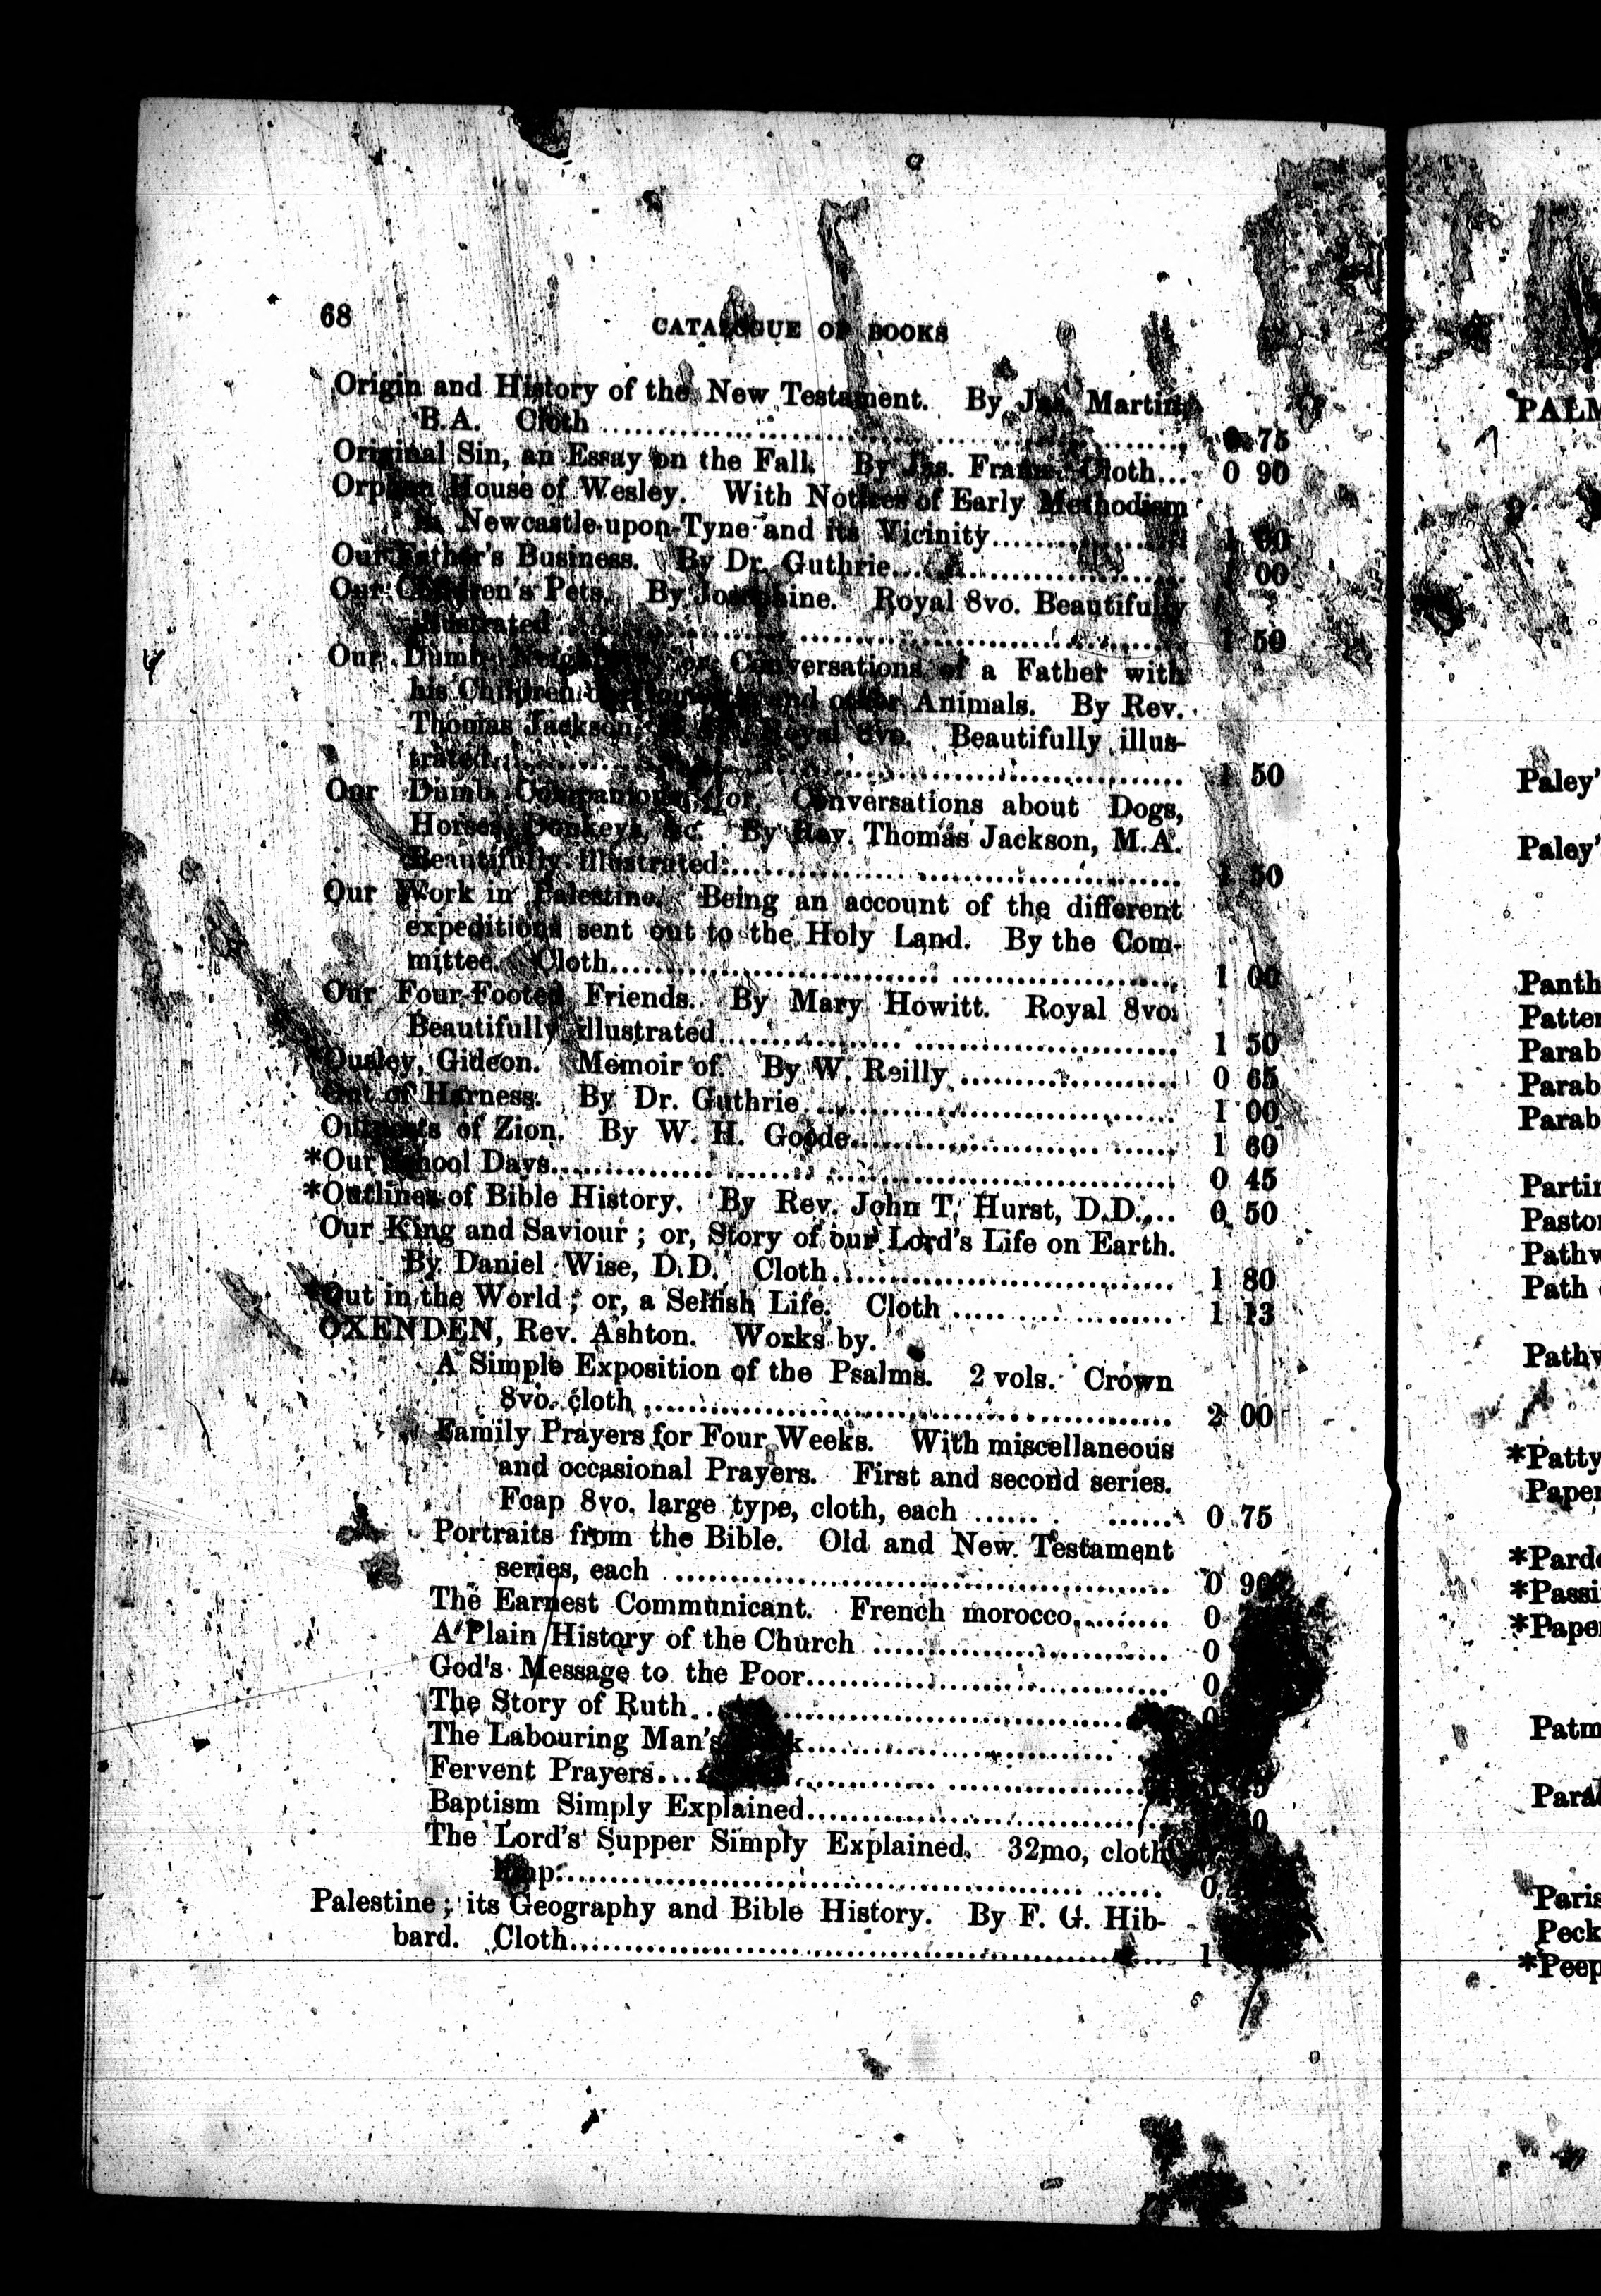 68
CATALOGUE OF BOOKS
Origin and History of the New Testament. By Jas. Martin,
B.A. Cloth 0 75
Original Sin, an Essay on the Fall. By Jas. Frame. Cloth... 0 90
Orphan House of Wesley. With Notices of Early Methodism
in Newcastle-upon-Tyne and its Vicinity
Our Father's Business. By Dr. Guthrie 1 00
Our Children's Pets. By Josephine. Royal 8vo. Beautifully
illustrated 1 50
Our Dumb or, Conversations of a Father with
his Children and other Animals. By Rev.
Thomas Jackson, Royal 8vo. Beautifully illus-
trated 1 50
Our Dumb Companions; or, Conversations about Dogs,
Horses, Donkeys, &c. By Rev. Thomas Jackson, M.A.
Beautifully illustrated 1 50
Our Work in Palestine. Being an account of the different
expeditions sent out to the Holy Land. By the Com-
mittee. Cloth 1 00
Our Four-Footed Friends. By Mary Howitt. Royal 8vo.
Beautifully illustrated 1 50
*Ousley, Gideon. Memoir of. By W. Reilly 0 65
Out of Harness. By Dr. Guthrie 1 00
Outposts of Zion. By W. H. Goode 1 60
*Our School Days 0 45
*Outlines of Bible History. By Rev. John T. Hurst, D.D.... 0 50
Our King and Saviour; or, Story of our Lord's Life on Earth.
By Daniel Wise, D.D. Cloth 1 80
*Out in the World; or, a Selfish Life. Cloth 1 13
OXENDEN, Rev. Ashton. Works by.
A Simple Exposition of the Psalms. 2 vols. Crown
8vo. cloth 2 00
Family Prayers for Four Weeks. With miscellaneous
and occasional Prayers. First and second series.
Fcap 8vo. large type, cloth, each 0 75
Portraits from the Bible. Old and New Testament
series, each 0 90
The Earnest Communicant. French morocco 0
A Plain History of the Church 0
God's Message to the Poor 0
The Story of Ruth 0
The Labouring Man's
Fervent Prayers
Baptism Simply Explained
The Lord's Supper Simply Explained. 32mo, cloth
limp 0
Palestine; its Geography and Bible History. By F. G. Hib-
bard. Cloth 1
PALM
Paley'
Paley'
Panth
Patter
Parab
Parab
Parab
Partin
Pastor
Pathw
Path
Pathw
*Patty
Paper
*Pardo
*Passi
*Paper
Patm
Para
Paris
Peck
*Peep